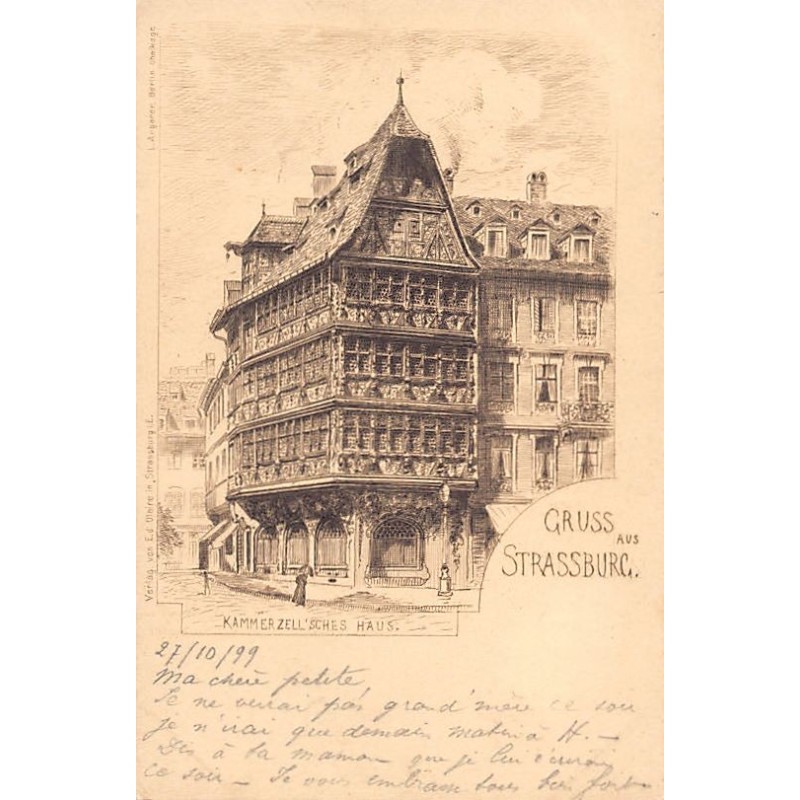 L. Angerer, Berlin chalkogr.
Verlag von Ed. Ulmre in Strassburg i. E.
GRUSS
AUS
STRASSBURG.
KAMMERZELL'SCHES HAUS.
27/10/99
Ma chère petite
Je ne verrai pas grand'mère ce soir
je n'irai que demain matin à H. —
Dis à ta maman que je lui écrirai
ce soir — Je vous embrasse tous bien fort